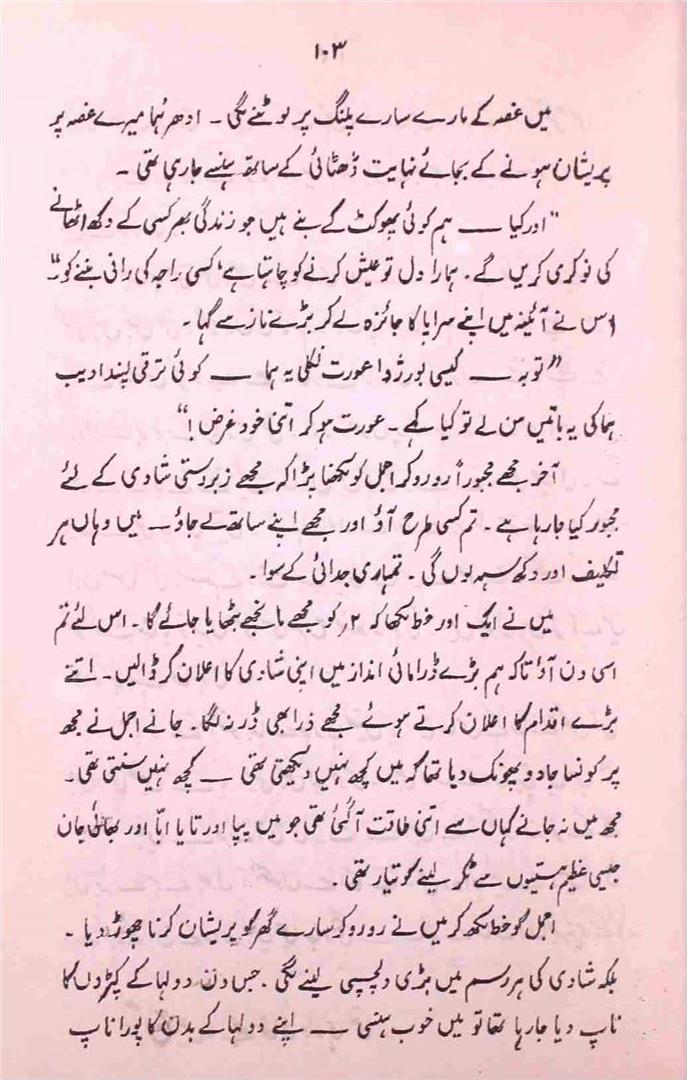 ۱۰۳
میں غصہ کے مارے سارے پلنگ پر لوٹنے لگی۔ ادھر ہُما میرے غصہ پر
پریشان ہونے کے بجائے نہایت ڈھٹائی کے ساتھ ہنسے جا رہی تھی۔
"اور کیا ــــ ہم کوئی پھوکٹ کے بنے ہیں جو زندگی بھر کسی کے دکھ اٹھانے
کی نوکری کریں گے۔ ہمارا دل تو عیش کرنے کو چاہتا ہے، کسی راجہ کی رانی بننے کو۔"
اس نے آئینہ میں اپنے سراپا کا جائزہ لے کر بڑے ناز سے کہا۔
"توبہ ــــ کیسی بورژوا عورت نکلی یہ ہما ــــ کوئی ترقی پسند ادیب
ہما کی یہ باتیں سن لے تو کیا کہے۔ عورت ہو کر اتنی خود غرض!"
آخر مجھے مجبوراً رو رو کر اجمل کو لکھنا پڑا کہ مجھے زبردستی شادی کے لئے
مجبور کیا جا رہا ہے۔ تم کسی طرح آؤ اور مجھے اپنے ساتھ لے جاؤ ــــ میں وہاں ہر
تکلیف اور دکھ سہہ لوں گی۔ تمہاری جدائی کے سوا۔
میں نے ایک اور خط لکھا کہ ۲؍ کو مجھے مانجھے بٹھایا جائے گا۔ اس لئے تم
اسی دن آؤ تاکہ ہم بڑے ڈرامائی انداز میں اپنی شادی کا اعلان کر ڈالیں۔ اتنے
بڑے اقدام کا اعلان کرتے ہوئے مجھے ذرا بھی ڈر نہ لگا۔ جانے اجمل نے مجھ
پر کونسا جادو پھونک دیا تھا کہ میں کچھ نہیں دیکھتی تھی ــــ کچھ نہیں سنتی تھی۔
مجھ میں نہ جانے کہاں سے اتنی طاقت آگئی تھی جو میں پپا اور تایا ابّا اور بھائی جان
جیسی عظیم ہستیوں سے ٹکر لینے کو تیار تھی۔
اجمل کو خط لکھ کر میں نے رو رو کر سارے گھر کو پریشان کرنا چھوڑ دیا۔
بلکہ شادی کی ہر رسم میں بڑی دلچسپی لینے لگی۔ جس دن دولہا کے کپڑوں کا
ناپ دیا جا رہا تھا تو میں خوب ہنسی ــــ اپنے دولہا کے بدن کا پورا ناپ